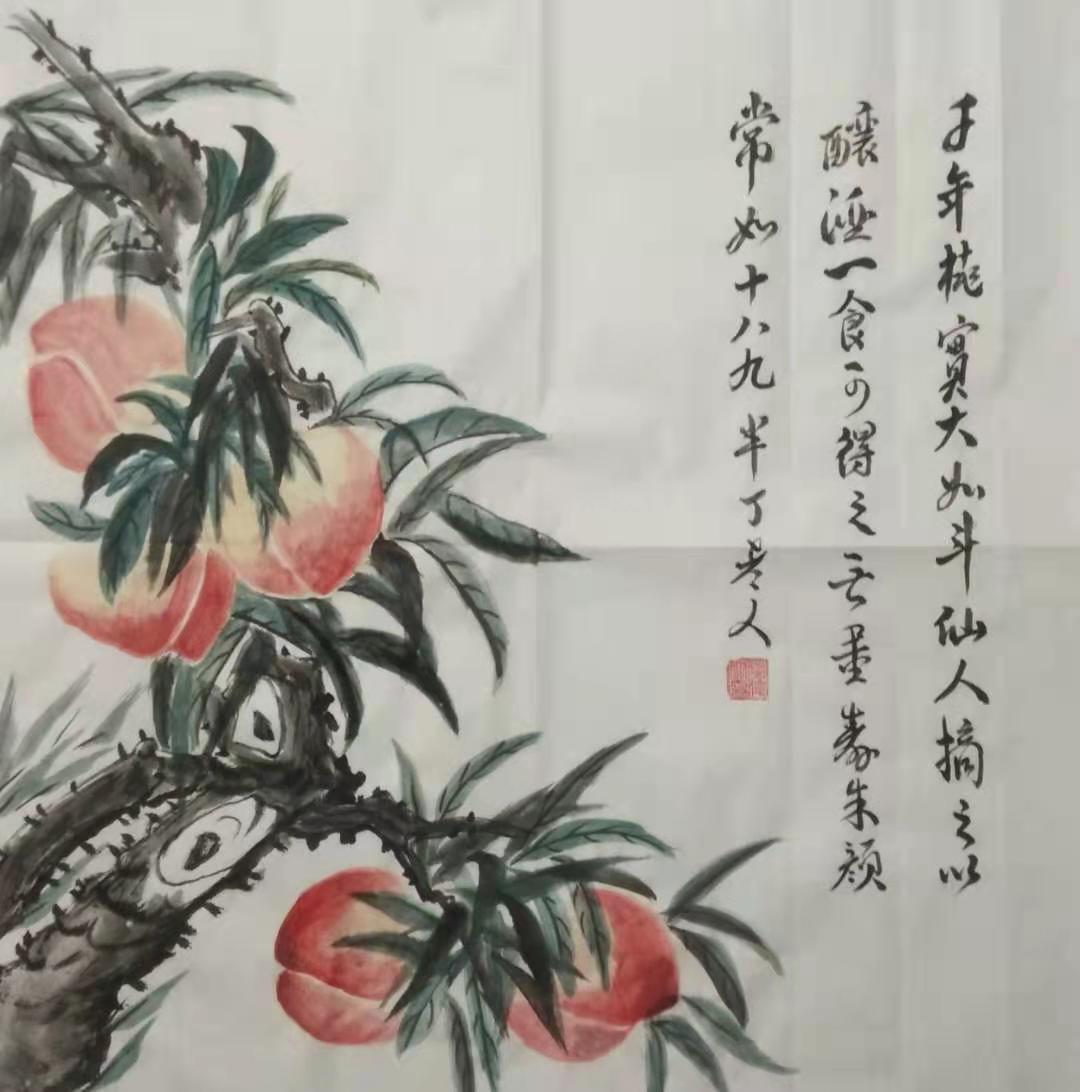 千年桃實大如斗仙人摘之以
釀酒一食可得之千萬壽朱顏
常如十八九半丁老人